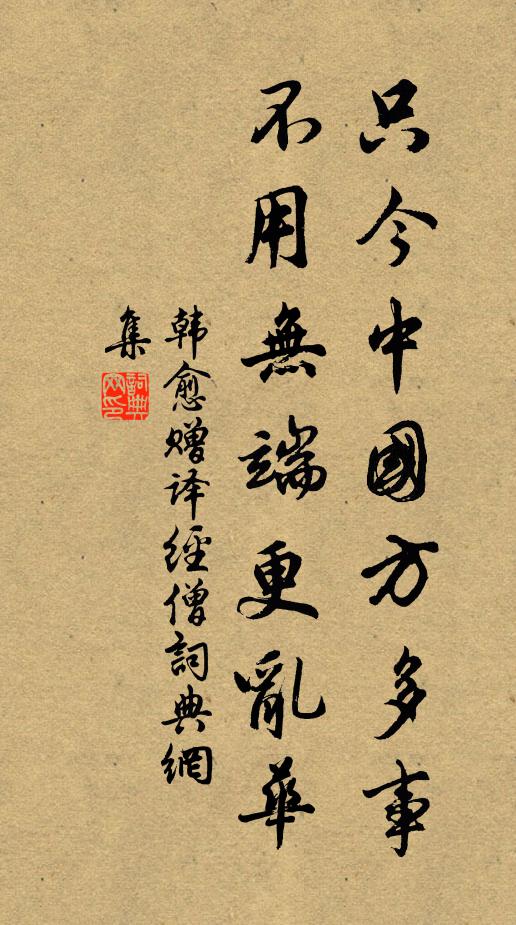 只今中國方多事
不用無端更亂華
韩愈赠译經僧詞典網
集
詞典网印